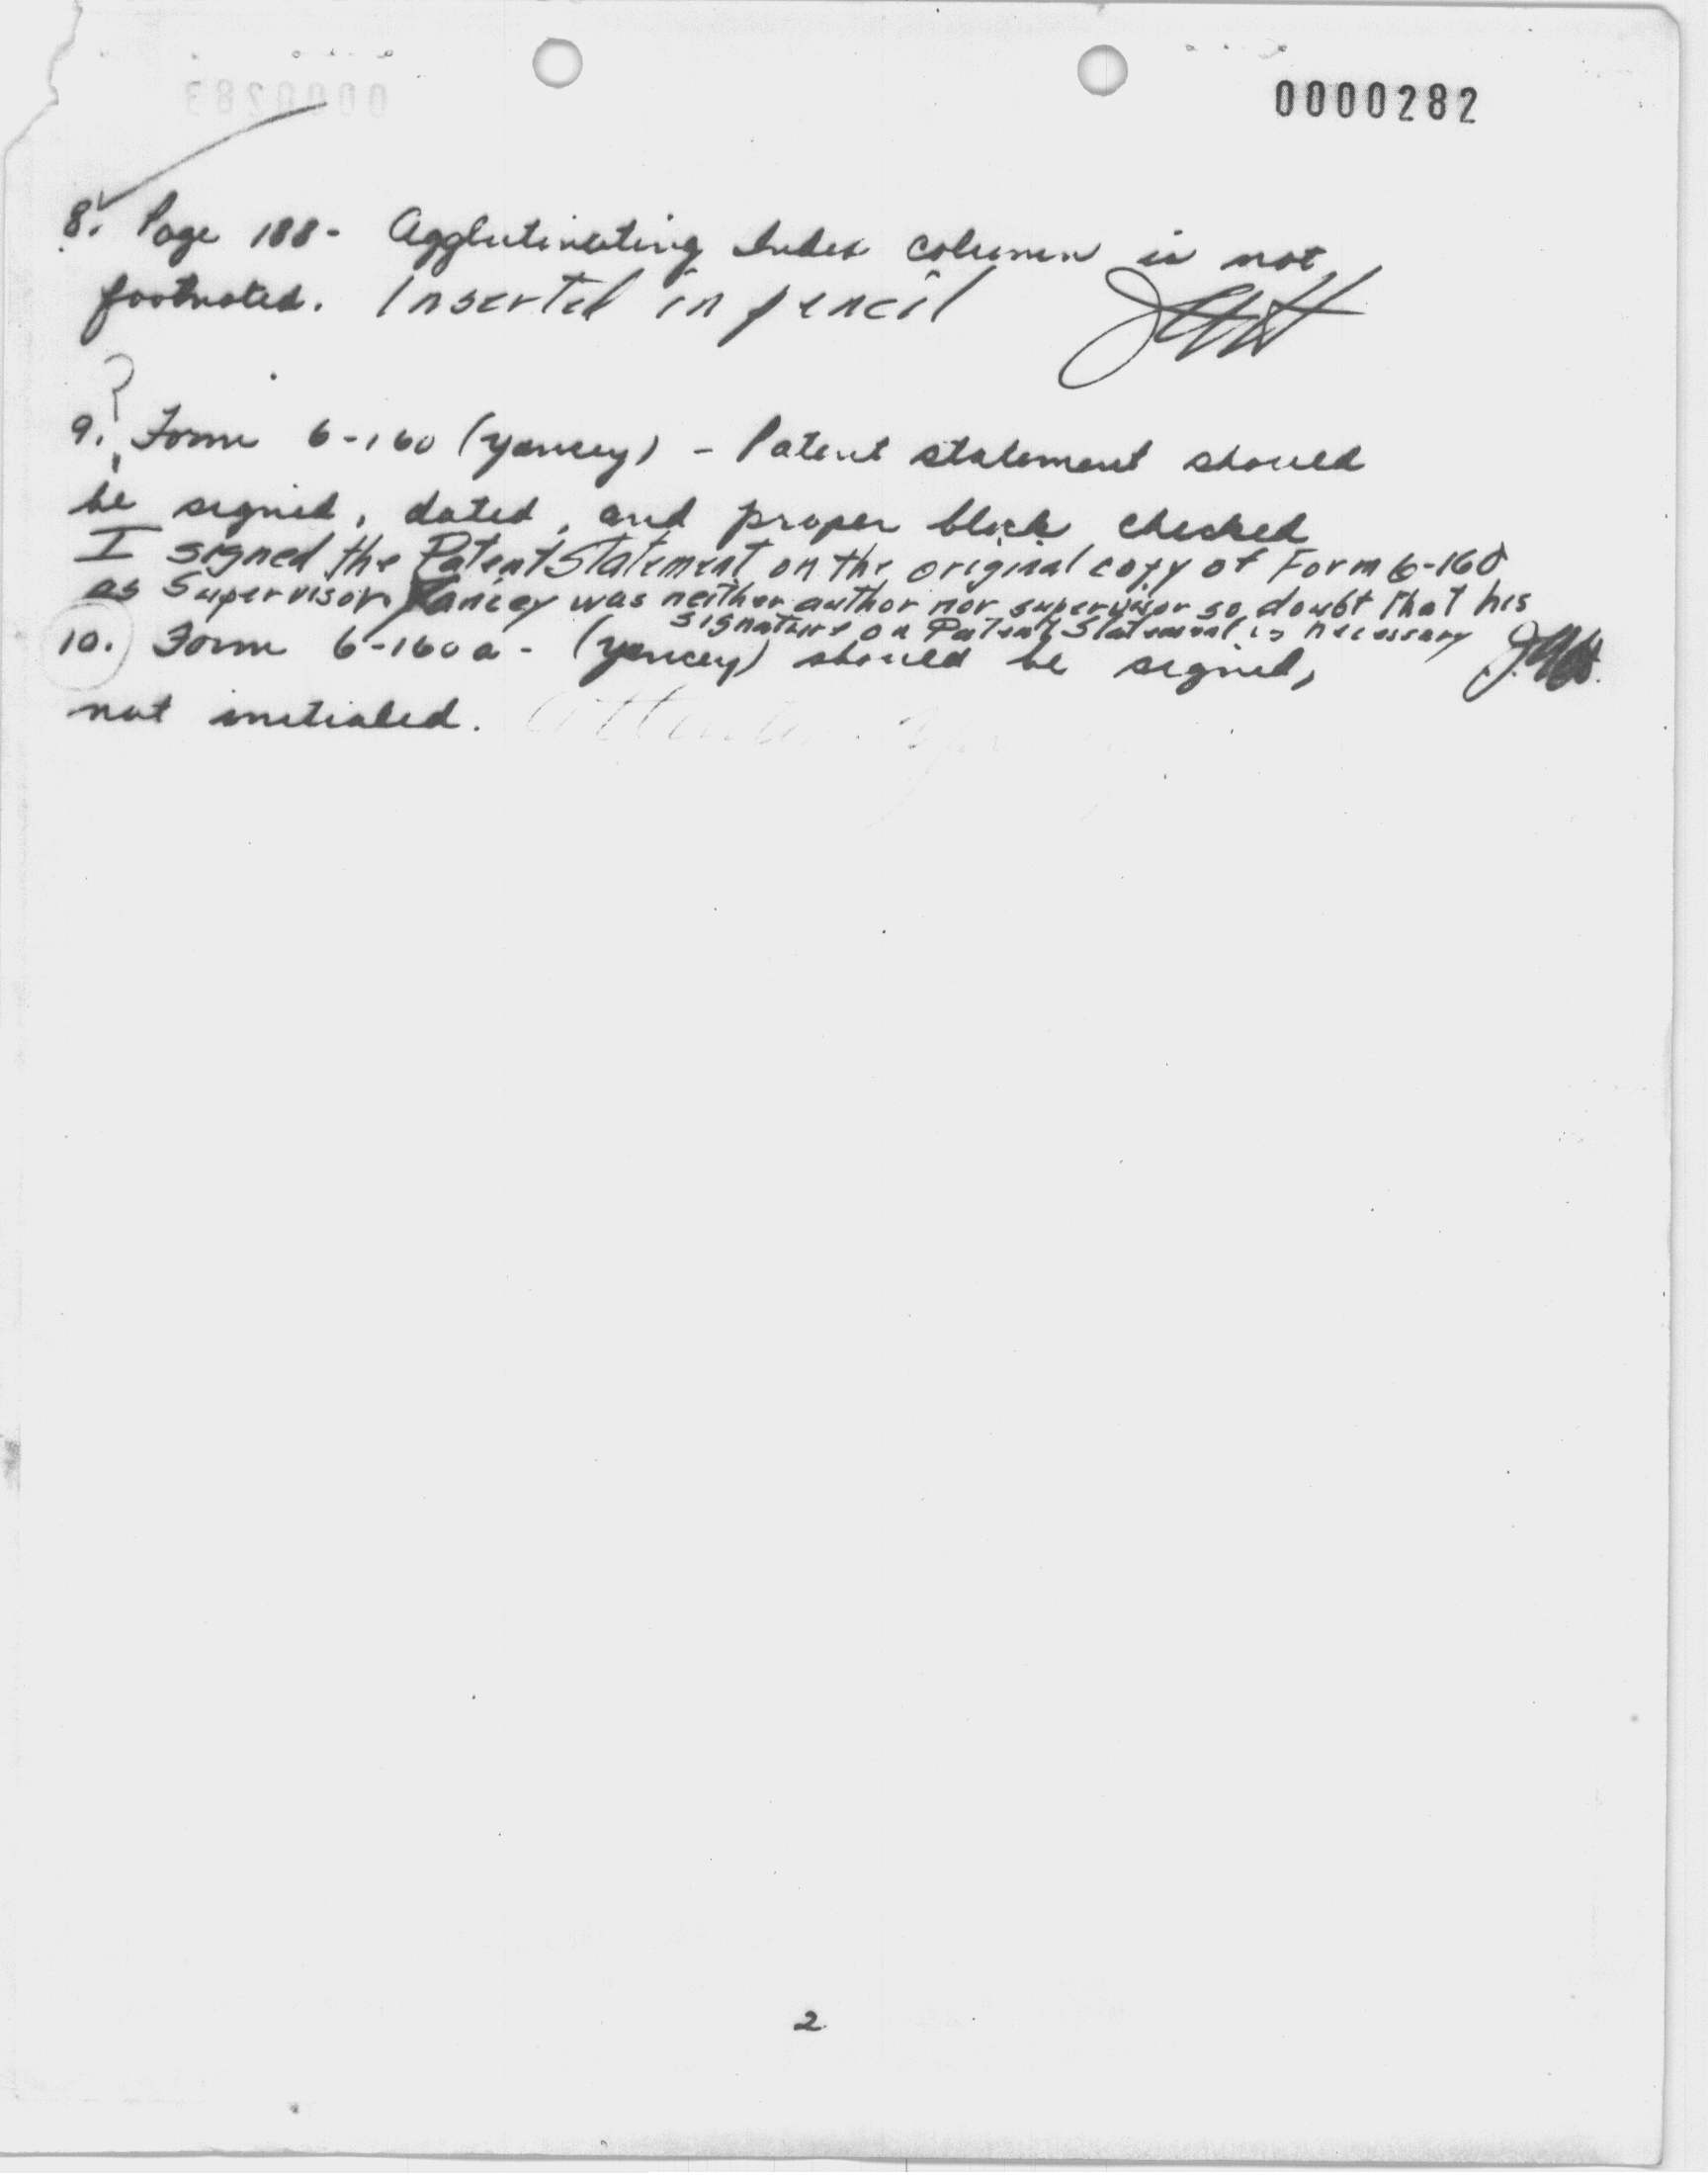 0000282
8. Page 188 - Agglutinating Index column is not
footnoted. Inserted in pencil
?
9. Form 6-160 (Yancey) - Patent statement should
be signed, dated, and proper block checked
I signed the Patent Statement on the original copy of Form 6-160
as Supervisor. Yancey was neither author nor supervisor so doubt that his
signature on Patent Statement is necessary
10. Form 6-160a - (Yancey) should be signed,
not initialed.
2